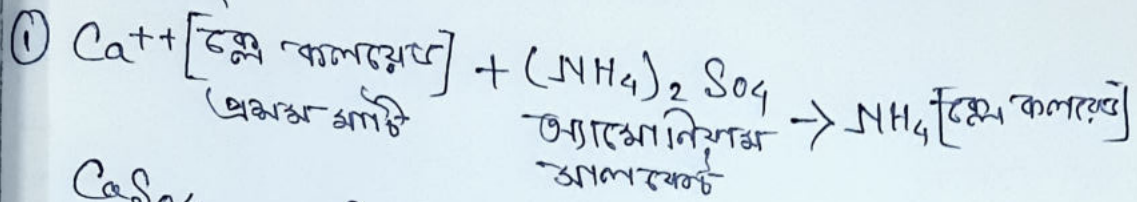 ① Ca++ [ক্লে কলয়েড] + (NH4)2 SO4 → NH4 [ক্লে কলয়েড]
প্রশম মাটি অ্যামোনিয়াম
সালফেট
CaSO4